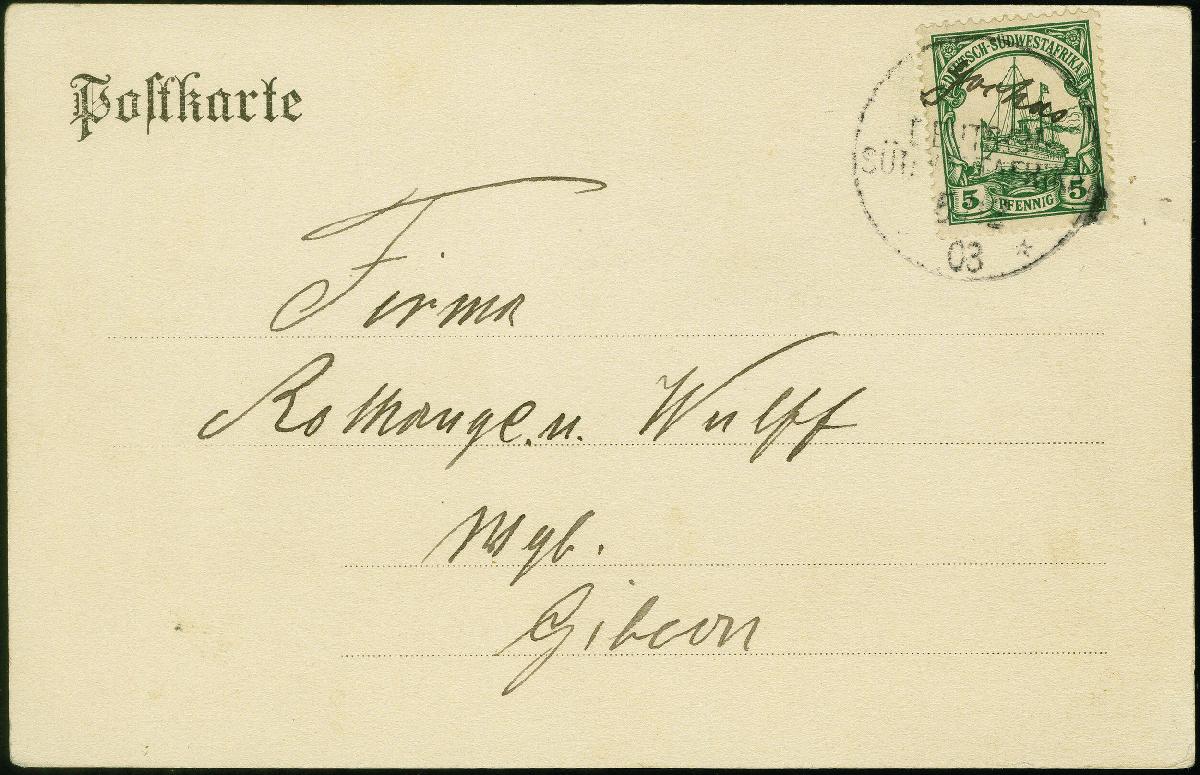 Postkarte
DEUTSCH-SÜDWESTAFRIKA
5 PFENNIG 5
03 *
Firma
Rothauge u. Wulff
Gibeon